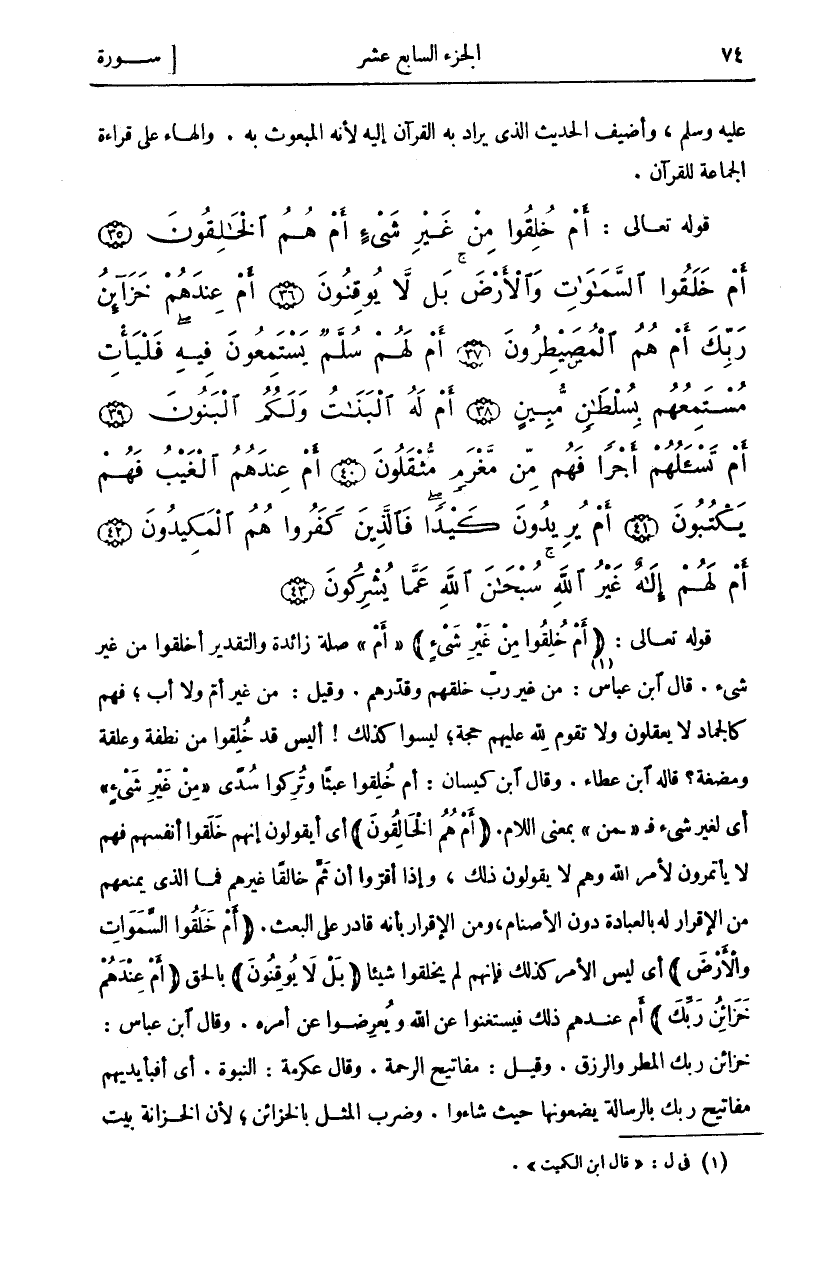 ٧٤ الجزء السابع عشر [ ســـورة
عليه وسلم ، وأضيف الحديث الذى يراد به القرآن إليه لأنه المبعوث به . والهاء على قراءة
الجماعة للقرآن .
قوله تعالى : أَمْ خُلِقُوا مِنْ غَيْرِ شَىْءٍ أَمْ هُمُ ٱلْخَٰلِقُونَ ﴿٣٥﴾
أَمْ خَلَقُوا ٱلسَّمَٰوَٰتِ وَٱلْأَرْضَ ۚ بَل لَّا يُوقِنُونَ ﴿٣٦﴾ أَمْ عِندَهُمْ خَزَآئِنُ
رَبِّكَ أَمْ هُمُ ٱلْمُصَيْطِرُونَ ﴿٣٧﴾ أَمْ لَهُمْ سُلَّمٌ يَسْتَمِعُونَ فِيهِ ۖ فَلْيَأْتِ
مُسْتَمِعُهُم بِسُلْطَٰنٍ مُّبِينٍ ﴿٣٨﴾ أَمْ لَهُ ٱلْبَنَٰتُ وَلَكُمُ ٱلْبَنُونَ ﴿٣٩﴾
أَمْ تَسْـَٔلُهُمْ أَجْرًا فَهُم مِّن مَّغْرَمٍ مُّثْقَلُونَ ﴿٤٠﴾ أَمْ عِندَهُمُ ٱلْغَيْبُ فَهُمْ
يَكْتُبُونَ ﴿٤١﴾ أَمْ يُرِيدُونَ كَيْدًا ۖ فَٱلَّذِينَ كَفَرُوا هُمُ ٱلْمَكِيدُونَ ﴿٤٢﴾
أَمْ لَهُمْ إِلَٰهٌ غَيْرُ ٱللَّهِ ۚ سُبْحَٰنَ ٱللَّهِ عَمَّا يُشْرِكُونَ ﴿٤٣﴾
قوله تعالى : ﴿ أَمْ خُلِقُوا مِنْ غَيْرِ شَىْءٍ ﴾ « أَمْ » صلة زائدة والتقدير أخلقوا من غير
شىء . قال ٱبن عباس (١) : من غير ربّ خلقهم وقدّرهم . وقيل : من غير أمّ ولا أب ؛ فهم
كالجماد لا يعقلون ولا تقوم لله عليهم حجة ؛ ليسوا كذلك ! أليس قد خُلِقوا من نطفة وعلقة
ومضغة ؟ قاله ٱبن عطاء . وقال ٱبن كيسان : أم خُلِقوا عبثًا وتُركوا سُدًى «مِنْ غَيْرِ شَىْءٍ»
أى لغير شىء فـ « ـمن » بمعنى اللام. ﴿ أَمْ هُمُ الْخَالِقُونَ ﴾ أى أيقولون إنهم خَلَقوا أنفسهم فهم
لا يأتمرون لأمر الله وهم لا يقولون ذلك ، وإذا أقرّوا أن ثَمَّ خالقًا غيرهم فما الذى يمنعهم
من الإقرار له بالعبادة دون الأصنام، ومن الإقرار بأنه قادر على البعث. ﴿ أَمْ خَلَقُوا السَّمَوَاتِ
وَالْأَرْضَ ﴾ أى ليس الأمر كذلك فإنهم لم يخلقوا شيئا ﴿ بَلْ لَا يُوقِنُونَ ﴾ بالحق ﴿ أَمْ عِنْدَهُمْ
خَزَائِنُ رَبِّكَ ﴾ أم عنـدهم ذلك فيستغنوا عن الله ويُعرِضـوا عن أمره . وقال ٱبن عباس :
خزائن ربك المطر والرزق . وقيـل : مفاتيح الرحمة . وقال عكرمة : النبوة . أى أفبأيديهم
مفاتيح ربك بالرسالة يضعونها حيث شاءوا . وضرب المثـل بالخزائن ؛ لأن الخـزانة بيت
(١) فى ل : « قال ابن الكميت » .